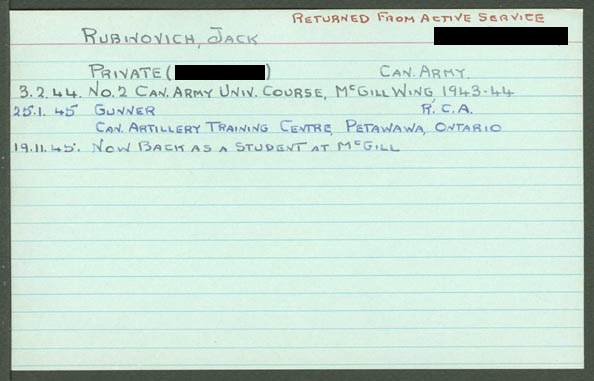 RETURNED FROM ACTIVE SERVICE
RUBINOVICH, JACK
PRIVATE ( ) CAN. ARMY.
3.2.44. NO. 2 CAN. ARMY UNIV. COURSE, McGILL WING 1943-44
25.1.45 GUNNER R.C.A.
CAN. ARTILLERY TRAINING CENTRE, PETAWAWA, ONTARIO
19.11.45. NOW BACK AS A STUDENT AT McGILL